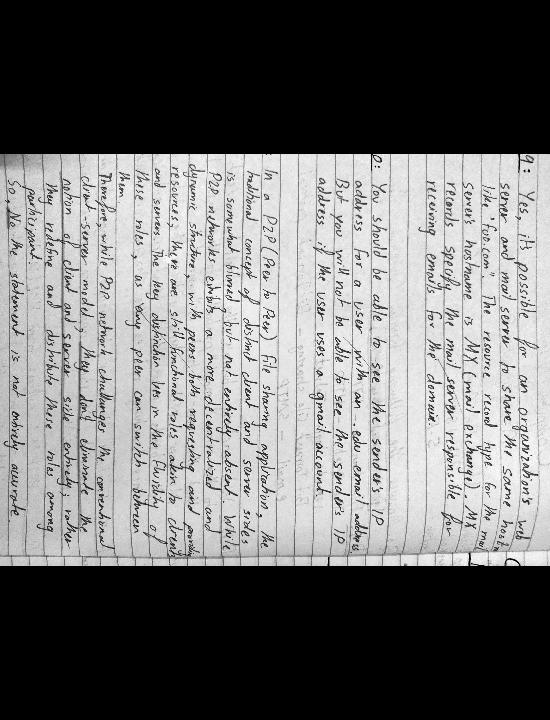 9: Yes, it's possible for an organization's web
server and mail server to share the same
like "foo.com". The resource record type for the mail
server's hostname is MX (mail exchange). MX
records specify the mail server responsible for
receiving emails for the domain.
0: You should be able to see the sender's IP
address for a user with an .edu email address.
But you will not be able to see the sender's IP
address if the user uses a gmail account.
: In a P2P (Peer to Peer) file sharing application, the
traditional concept of distinct client and server sides
is somewhat blurred, but not entirely absent. While
P2P networks exhibits a more decentralized and
dynamic structure, with peers both requesting and
resources, there are still functional roles akin to clients
and servers. The key distinction lies in the fluidity of
these roles, as any peer can switch between
them
Therefore, while P2P network challenges the conventional
client-server model, they don't eliminate the
notion of client and server side entirely; rather
they redefine and distribute these roles among
participant.
So, No the statement is not entirely accurate.